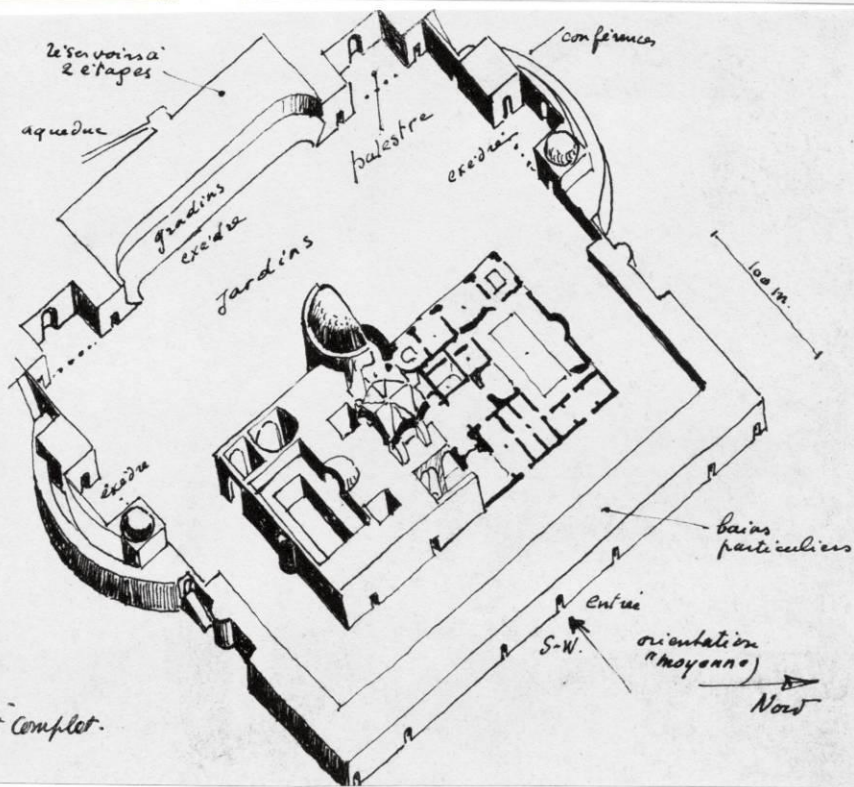 réservoirs à
2 étages
aqueduc
conférences
palestre
exèdre
gradins
exèdre
Jardins
100 m.
éxèdre
bains
particuliers
entrée
S-W.
orientation
(moyenne)
Nord
complet.